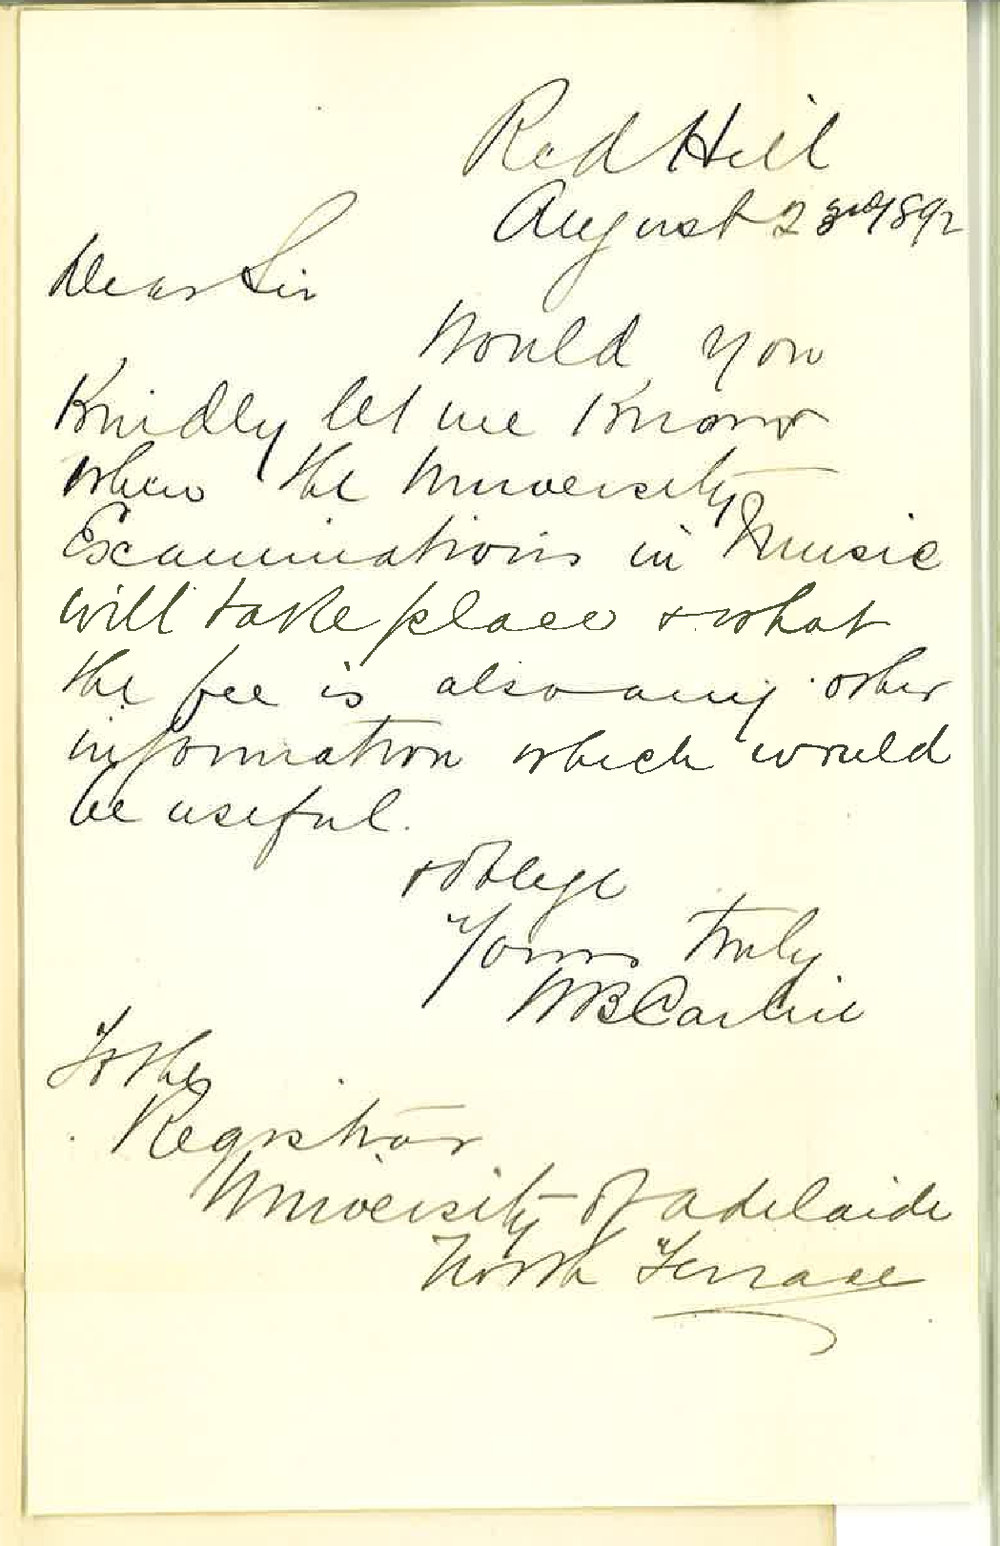 Red Hill
August 23rd 1892
Dear Sir
Would you
Kindly let me Know
when the University
Examinations in Music
will take place & what
the fee is also any other
information which would
be useful.
& oblige
Yours truly
WB
To the
Registrar
University of Adelaide
North Terrace